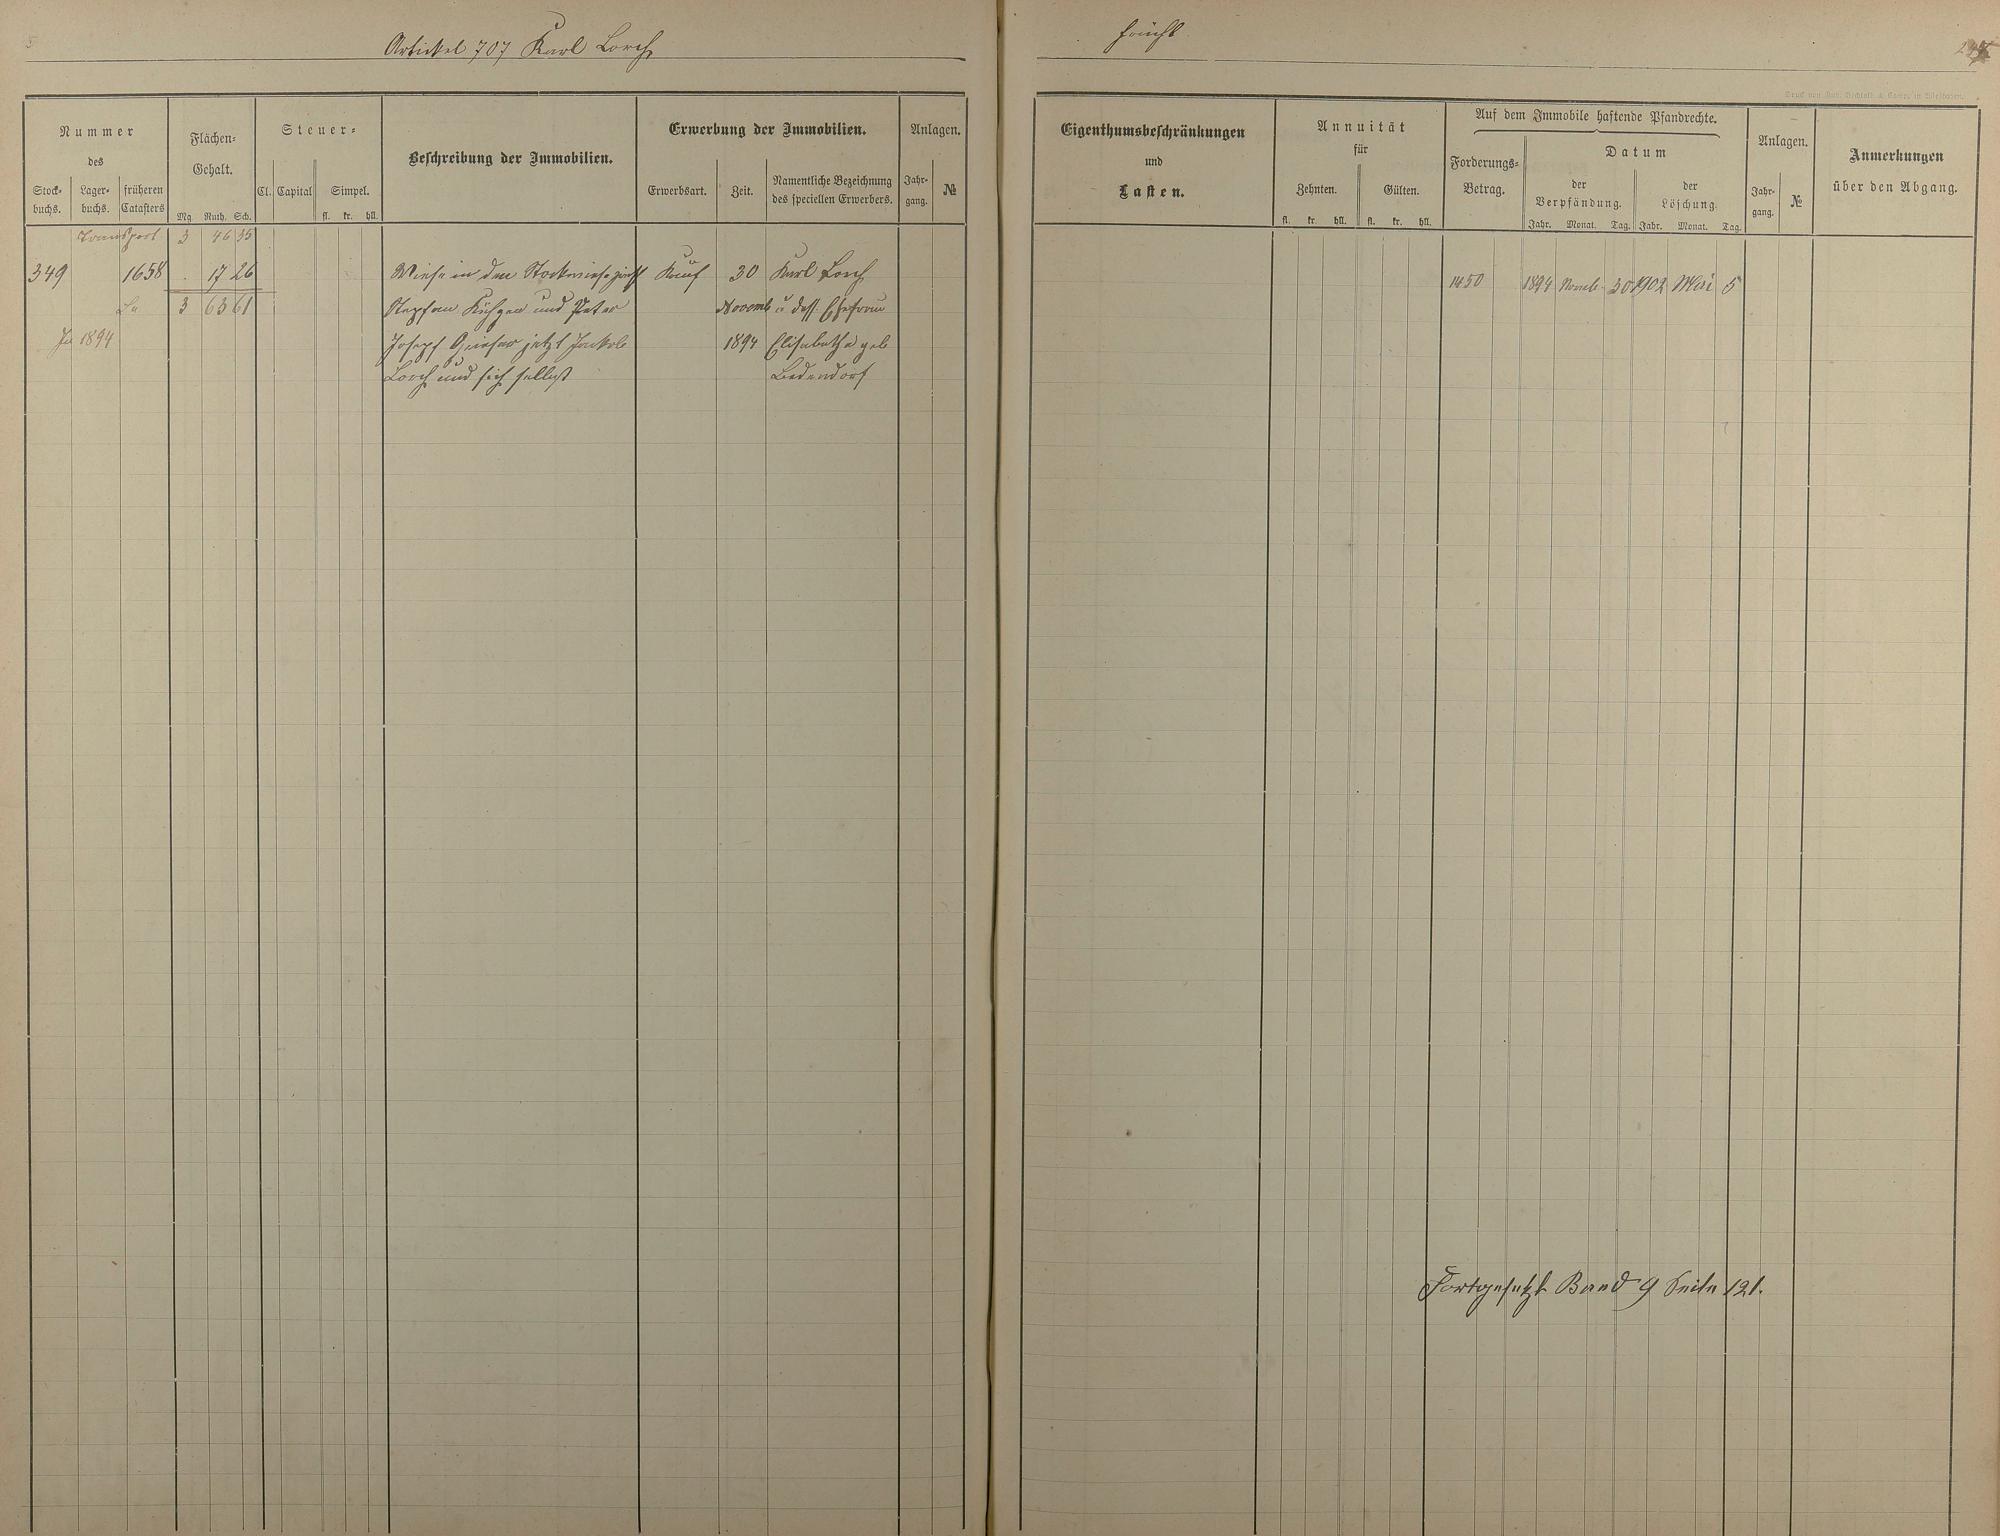 Artikel 707 Karl Lorch
Nummer
des
Stock-
buchs.
Lager-
buchs.
früheren
Catasters
Flächen-
Gehalt.
Mg. Ruth. Sch.
Steuer-
Cl. Capital Simpel.
fl. kr. hll.
Beschreibung der Immobilien.
Erwerbung der Immobilien.
Erwerbsart. Zeit.
Namentliche Bezeichnung
des speciellen Erwerbers.
Anlagen.
Jahr-
gang.
№
Transport 3 46 35
349 1658 . 17 26 Wiese in der Stockwiese zwischen Kauf 30 Karl Lorch
3 63 61 Stephan und Peter Novemb u dess. Ehefrau
1894 Joseph jetzt Jakob 1894 Elisabetha geb
Lorch und sich selbst Bedendorf
Frücht
Druck von Rud. Bechtold & Comp. in Wiesbaden.
Eigenthumsbeschränkungen
und
Lasten.
Annuität
für
Zehnten. Gülten.
fl. kr. hll. fl. kr. hll.
Auf dem Immobile haftende Pfandrechte.
Forderungs-
Betrag.
Datum
der
Verpfändung.
Jahr. Monat. Tag.
der
Löschung.
Jahr. Monat. Tag.
Anlagen.
Jahr-
gang.
№
Anmerkungen
über den Abgang.
1450 1894 Novemb. 30 1902 Mai 5
Fortgesetzt Band 9 Seite 121.